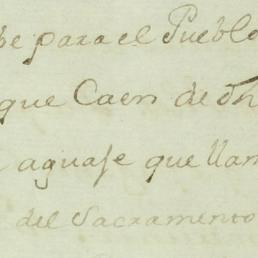 para el Pueblo
que Caen de
aguaje que llam
del Sacramento